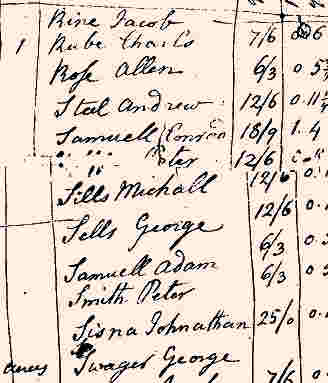 Rine Jacob
1 Rube Charls 7/6
Rose Allen 6/3 0.5
Steel Andrew 12/6 0.11
Samuell Conrad 18/9 1.4
" " Peter 12/6
Sills Michall 12/6
Sells George 12/6
Samuell Adam 6/3
Smith Peter 6/3
Sisna Johnathan 25/0
acres Swager George
7/6